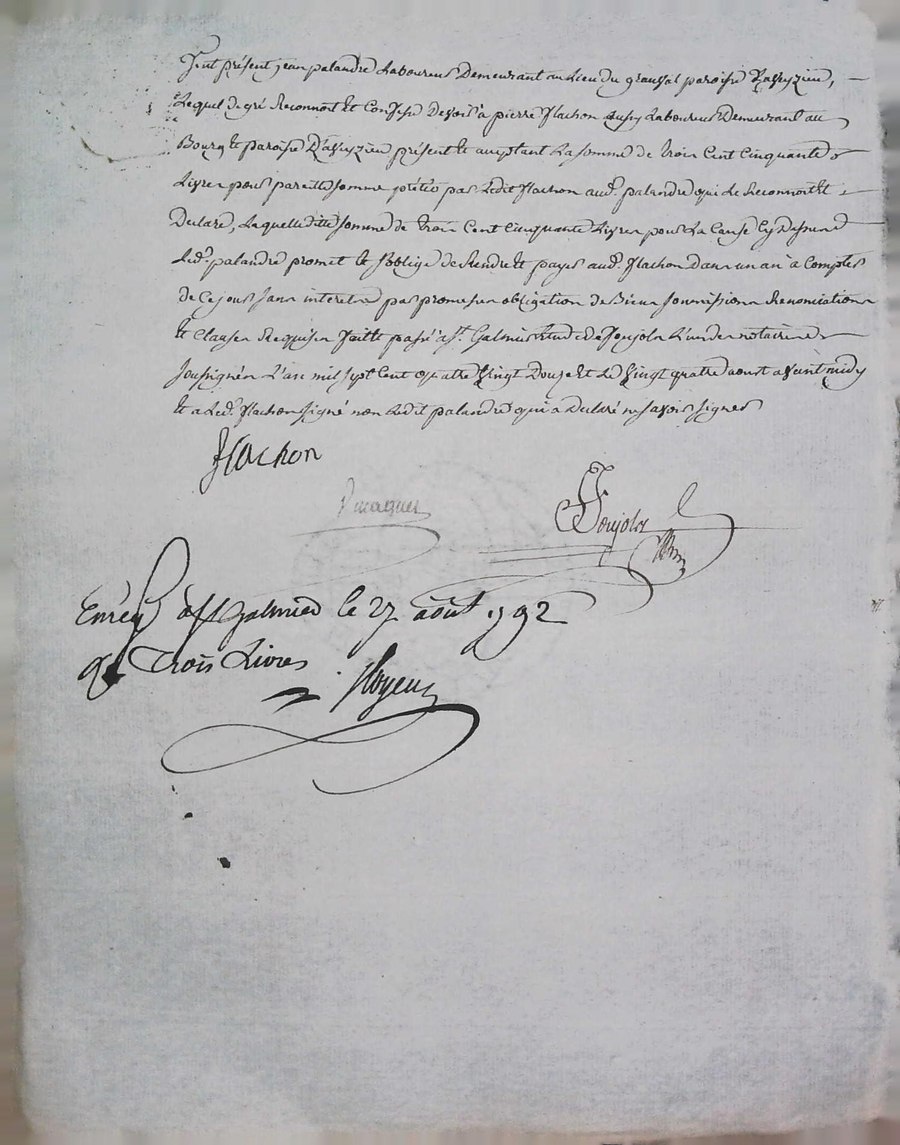 fut présent jean palandre Laboureur Demeurant au Lieu du grauval paroisse D'aveyzieu,
Lequel de gré Reconnoit et Confesse Devoir à pierre flachon aussy Laboureur Demeurant au
Bourg et paroisse D'aveyzieu présent et acceptant La somme de trois Cent Cinquante
Livres pour pareille somme prêtée par Ledit flachon aud. palandre qui Le Reconnoit et
Déclare, Laquelle ditte somme de trois Cent Cinquante Livres pour La Cause Cy Dessus
Led. palandre promet et s'oblige de Rendre et payer aud. flachon Dans un an à Compter
de Ce jour sans interet par promesses obligation de Biens soumissions Renonciations
et Clauses Requises faitte passé à St. Galmier Etude de Ponjols L'un des notaires
soussignés L'an mil sept Cent quatre vingt Douze et Le vingt quatre aoust avant midy
et a Led. flachon signé non Ledit palandre qui a Déclaré ne savoir signer
flachon
Ponjols
Enreg. à St Galmier le 27 août 1792
Trois Livres